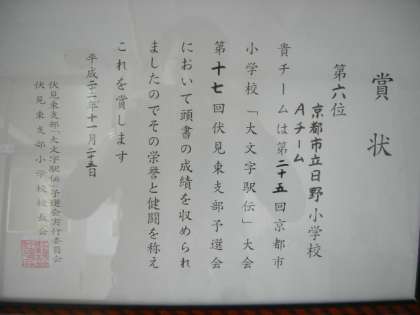 賞状
第六位
京都市立日野小学校
Aチーム
貴チームは第二十五回京都市
小学校「大文字駅伝」大会
第十七回伏見東支部予選会
において頭書の成績を収められ
ましたのでその栄誉と健闘を称え
これを賞します
平成二十二年十一月二十五日
伏見東支部「大文字駅伝」予選会実行委員会
伏見東支部小学校校長会